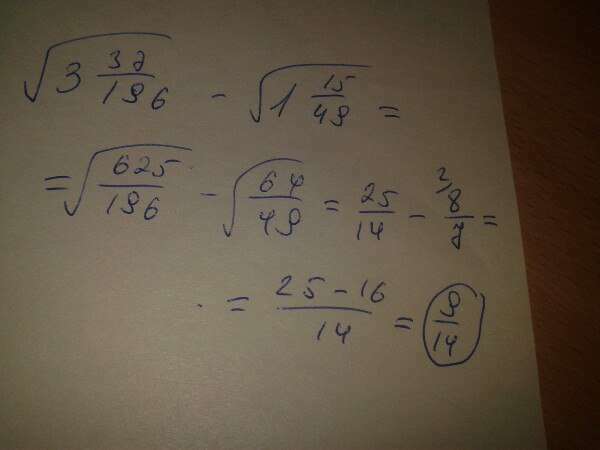 √(3 37/196) - √(1 15/49) =
= √(625/196) - √(64/49) = 25/14 - 2) 8/7 =
= (25-16)/14 = 9/14